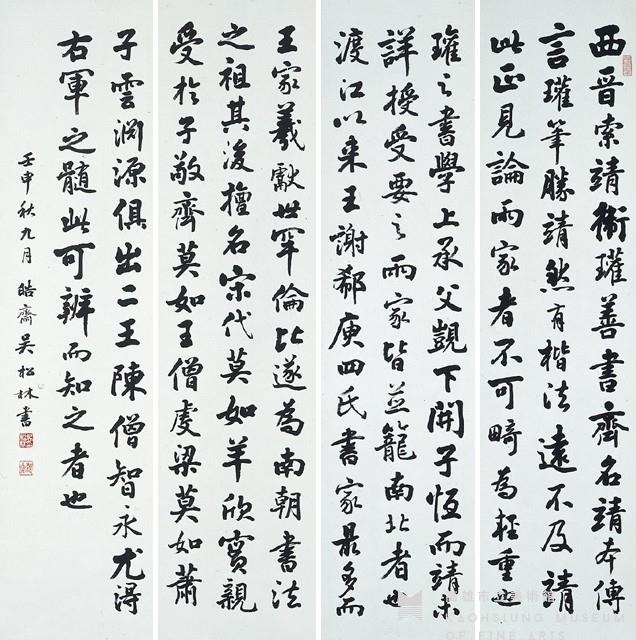 西晉索靖衛瓘善書齊名靖本傳
言瓘筆勝靖然有楷法遠不及靖
此正見論兩家者不可畸為輕重也
瓘之書學上承父覬下開子恆而靖未
詳授受要之兩家皆並籠南北者也
渡江以來王謝郗庾四氏書家最多而
王家羲獻世罕倫比遂為南朝書法
之祖其後擅名宋代莫如羊欣實親
受於子敬齊莫如王僧虔梁莫如蕭
子雲淵源俱出二王陳僧智永尤得
右軍之髓此可辨而知之者也
壬申秋九月 皓齋吳松林書
高雄市立美術館
KAOHSIUNG MUSEUM
OF FINE ARTS